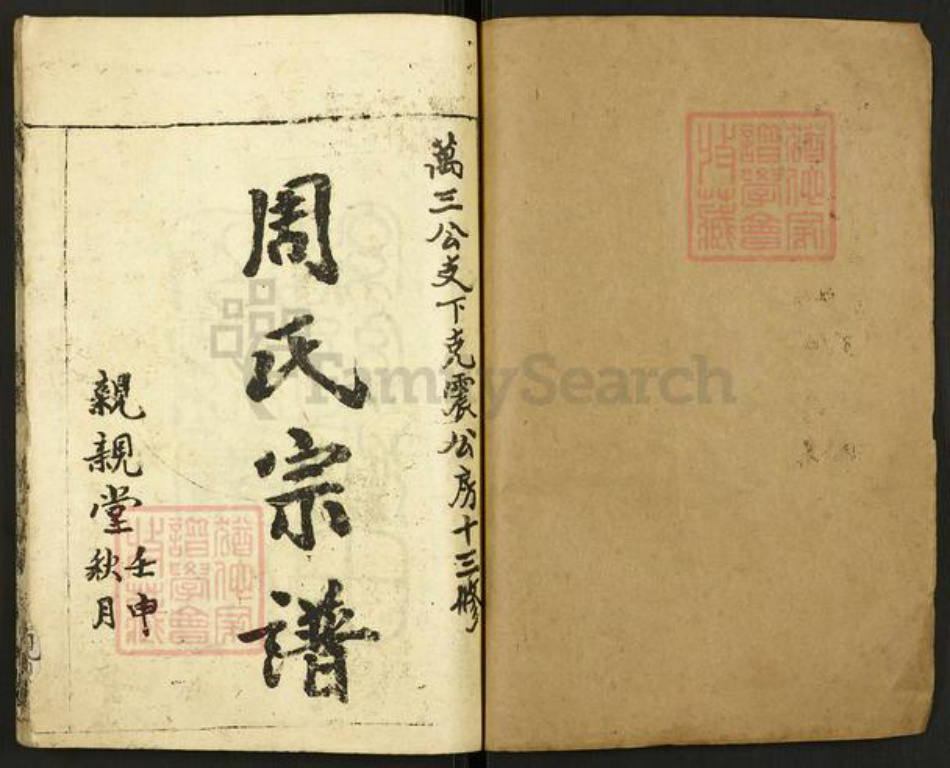 猶他家
譜學會
收藏
萬三公支下克震公房十三修
周氏宗譜
親親堂
壬申
秋月
猶他家
譜學會
收藏
FamilySearch